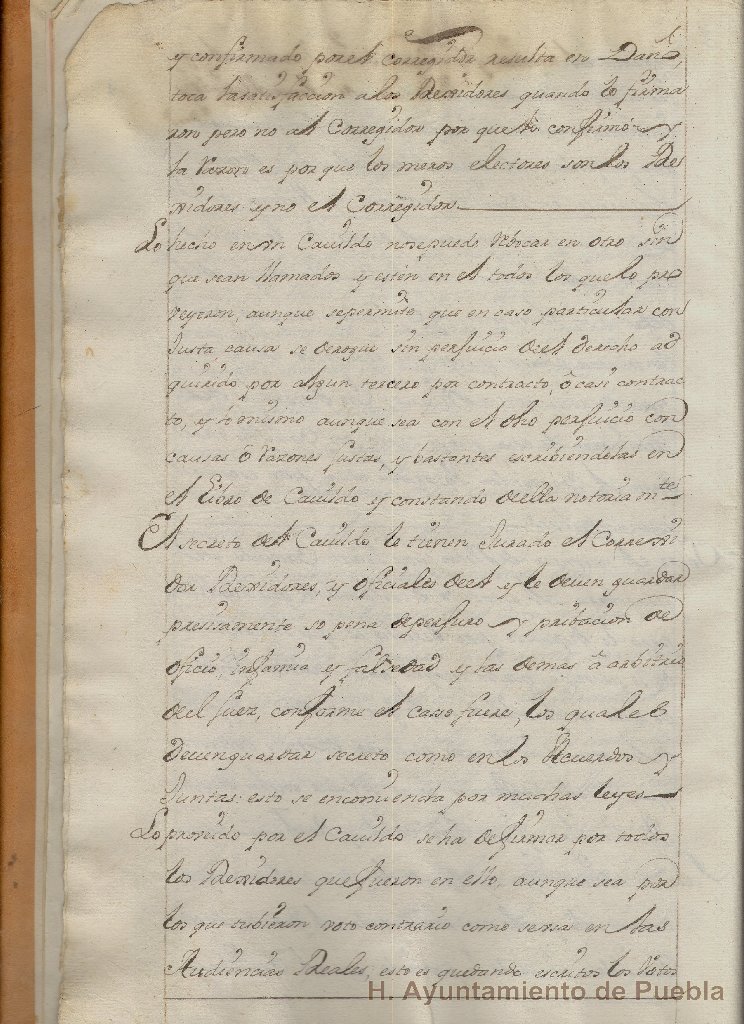 y confirmado por el corregidor resulta en Daño,
toca la satisfaccion a los Rexidores quando lo firma
ron pero no al Corregidor por que lo confirmó y
la razon es por que los meros electores son los Re
xidores y no el Corregidor
Lo hecho en un Cauildo nosepuedo rebocar en otro sin
que sean llamados y estèn en el todos los quelo pro
veyeron, aunque sepermite que en caso particular con
Justa causa se derogue sin perjuicio del derecho ad
quirido por algun tercero por contracto, ô casi contrac
to, y lo mismo aunque sea con el dho perjuicio con
causas ô razones justas, y bastantes escribiendelas en
el Libro de Cauildo y constando della notoria mte
El secreto del Cauildo le tienen Jurado el Correxi
dor Rexidores, y oficiales del y le deuen guardar
presisamente so pena deperjuro y pribacion de
oficio, infamia y falsedad y las demas â arbitrio
del Juez, conforme el caso fuere, los quales
Deuenguardar secreto como en los Acuerdos y
Juntas esto se encomienda por muchas leyes
Lo proveido por el Cauildo se ha defirmar por todos
los Rexidores quefueron en ello, aunque sea por
los que tubieron voto contrario como seusa en las
Audiencias Reales, esto es quedando escritos los Votos
H. Ayuntamiento de Puebla